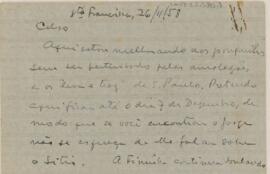 Sta Francisca, 26/11/58
Celso
Aqui estou melhorando aos pouquinhos
sem ser perturbado pelas amolações
e os de S. Paulo. Pretendo
aqui ficar até o dia 7 de Dezembro, de
modo que se você encontrar o Jorge
não se esqueça de lhe falar sobre
o Sítio. A continua